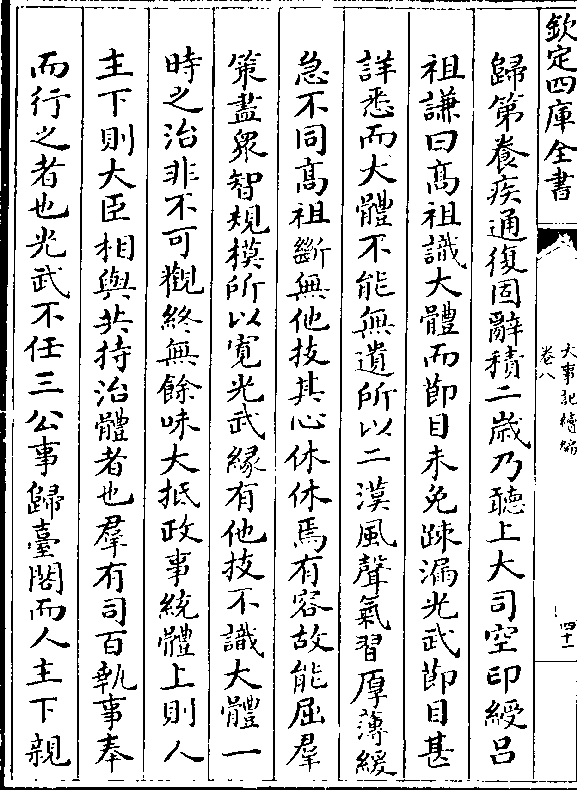 欽定四庫全書
大事記續編
卷八
四十一
歸第養疾通復固辭積二歲乃聽上大司空印綬呂
祖謙曰髙祖識大體而節目未免踈漏光武節目甚
詳悉而大體不能無遺所以二漢風聲氣習厚薄緩
急不同髙祖斷無他技其心休休焉有容故能屈羣
策盡衆智規模所以寛光武縁有他技不識大體一
時之治非不可觀終無餘味大抵政事統體上則人
主下則大臣相與共持治體者也羣有司百執事奉
而行之者也光武不任三公事歸臺閣而人主下親